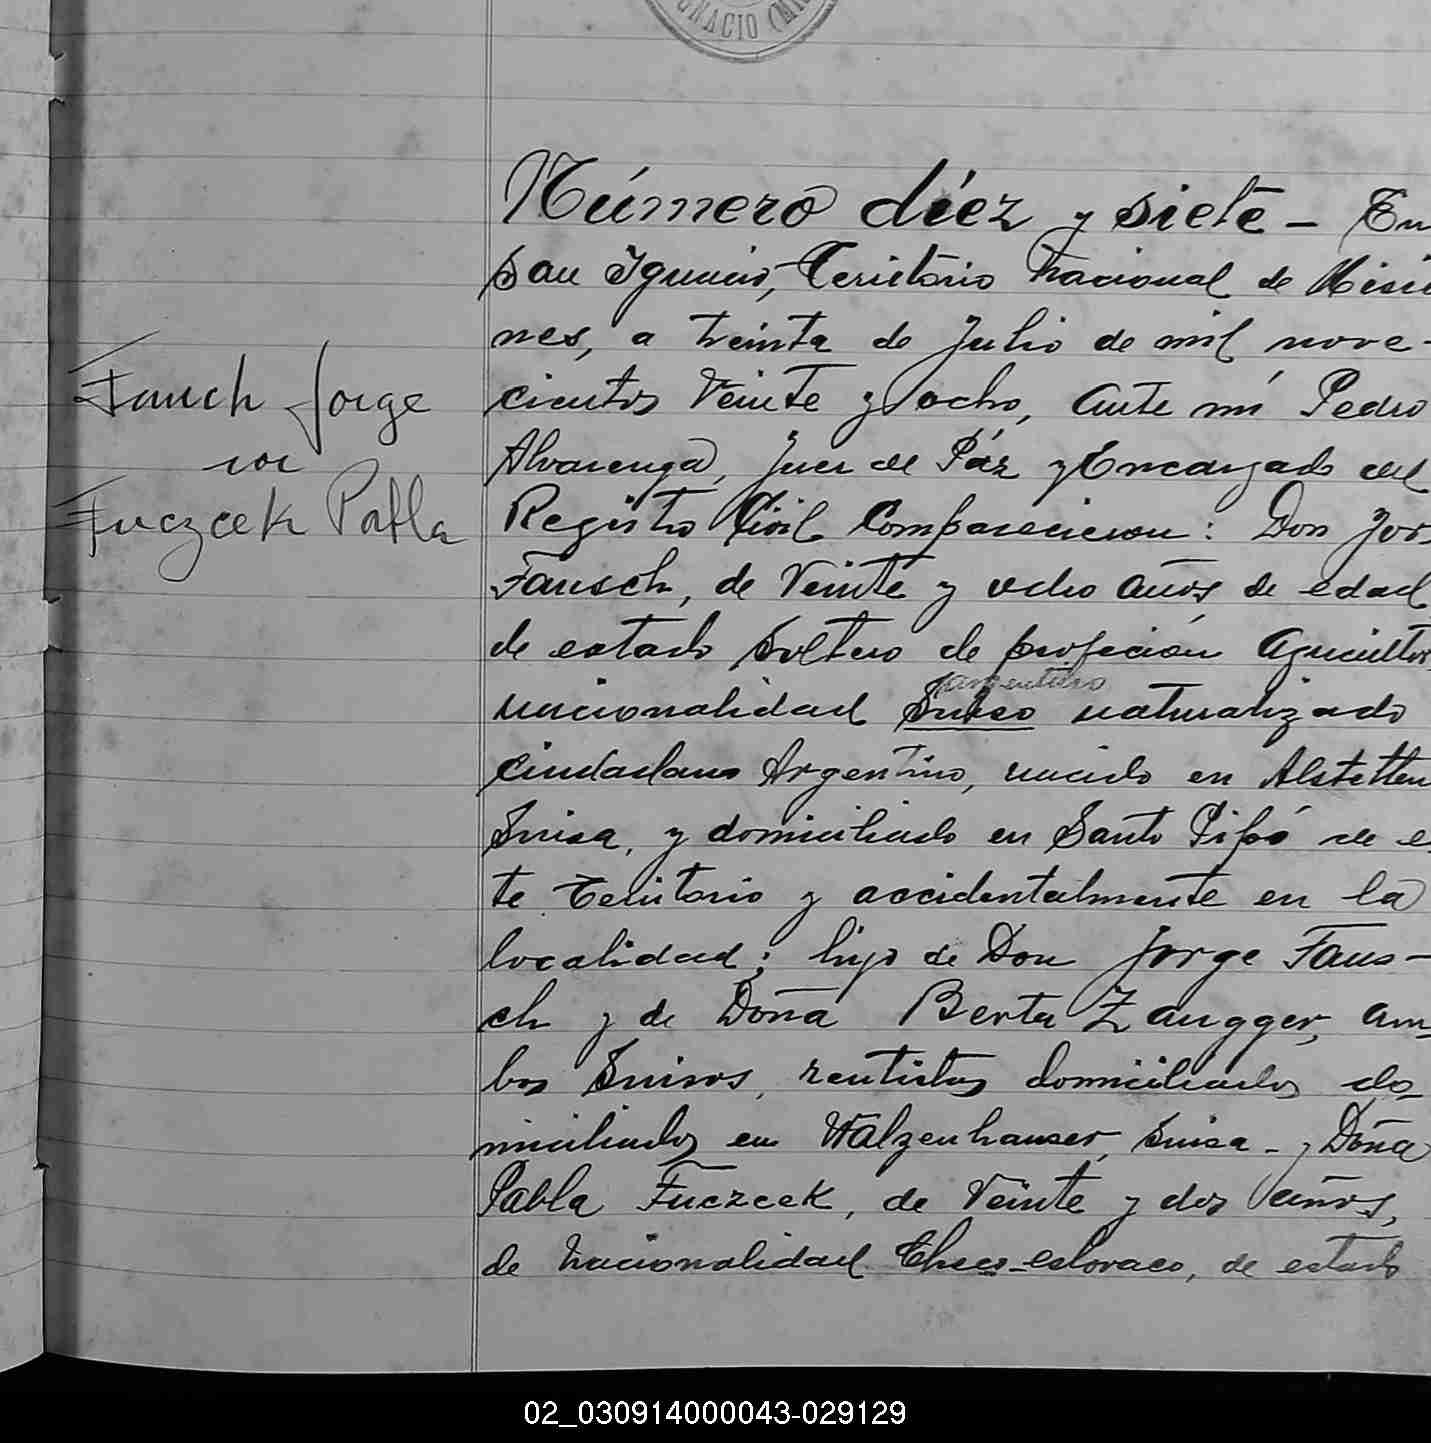 GNACIO (MI
Número diez y siete - En
San Ignacio, Territorio Nacional de Misio
nes, a treinta de Julio de mil nove-
cientos Veinte y ocho, Ante mí Pedro
Alvarenga, Juez de Páz y Encargado del
Registro Civil Comparecieron: Don Jor
Fausch, de Veinte y ocho años de edad
de estado soltero de profecion Agricultor
argentino
nacionalidad Suiso naturalizado
Ciudadano Argentino, nacido en Alstetten
Suisa, y domiciliado en Santo Pipó de e
te Teritorio y accidentalmente en la
localidad; hijo de Don Jorge Faus-
ch y de Doña Berta Zaugger, am
bos Suisos, rentistas domiciliados do-
miciliados en Walzenhauser, Suisa - y Doña
Pabla Fuczcek, de Veinte y dos años,
de nacionalidad Checo-eslovaco, de estado
Fauch Jorge
con
Fuczcek Pabla
02_030914000043-029129